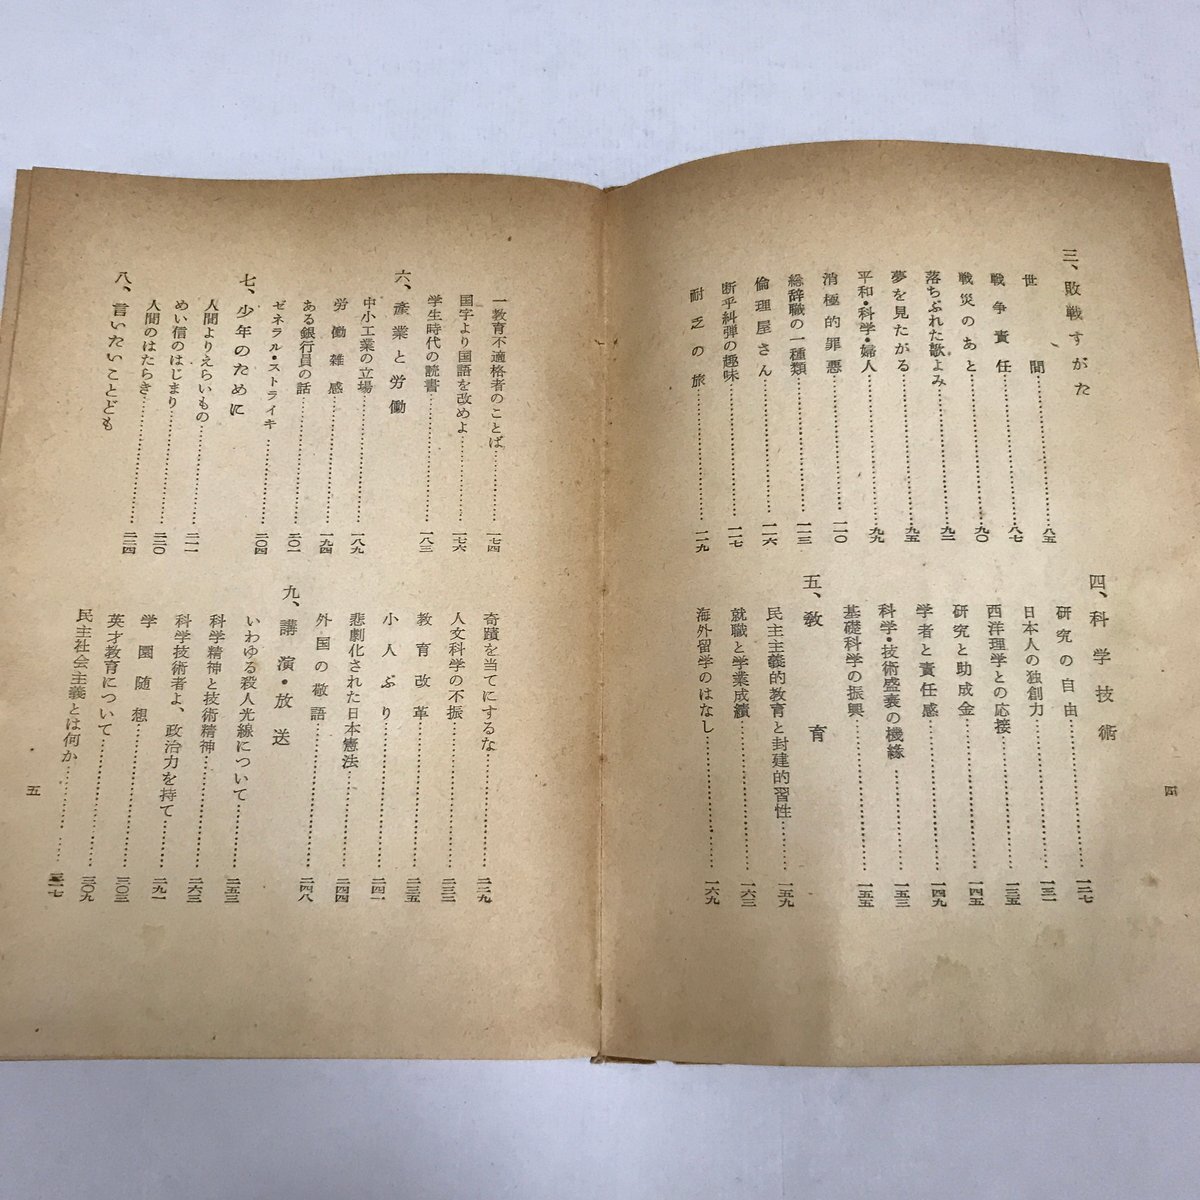 三、敗戦すがた
世間……………八五
戦争責任……………八七
戦災のあと……………九〇
落ちぶれた歌よみ……………九二
夢を見たがる……………九五
平和・科学・婦人……………九九
消極的罪悪……………一一〇
総辞職の一種類……………一一三
倫理屋さん……………一一六
断乎糾弾の趣味……………一一七
耐乏の旅……………一一九
四、科学技術
研究の自由……………一二七
日本人の独創力……………一三一
西洋理学との応接……………一三五
研究と助成金……………一四五
学者と責任感……………一四九
科学・技術盛衰の機縁……………一五三
基礎科学の振興……………一五五
五、教育
民主主義的教育と封建的習性……………一五九
就職と学業成績……………一六三
海外留学のはなし……………一六九
四
一教育不適格者のことば……………一七四
国字より国語を改めよ……………一七六
学生時代の読書……………一八三
六、産業と労働
中小工業の立場……………一八九
労働雑感……………一九四
ある銀行員の話……………二〇一
ゼネラル・ストライキ……………二〇四
七、少年のために
人間よりえらいもの……………二一一
めい信のはじまり……………二二〇
人間のはたらき……………二二四
八、言いたいことども
奇蹟を当てにするな……………二二九
人文科学の不振……………二三三
教育改革……………二三五
小人ぶり……………二四一
悲劇化された日本憲法……………二四四
外国の敬語……………二四八
九、講演・放送
いわゆる殺人光線について……………二五三
科学精神と技術精神……………二六三
科学技術者よ、政治力を持て……………二九一
学園随想……………三〇三
英才教育について……………三〇九
民主社会主義とは何か……………三一七
五